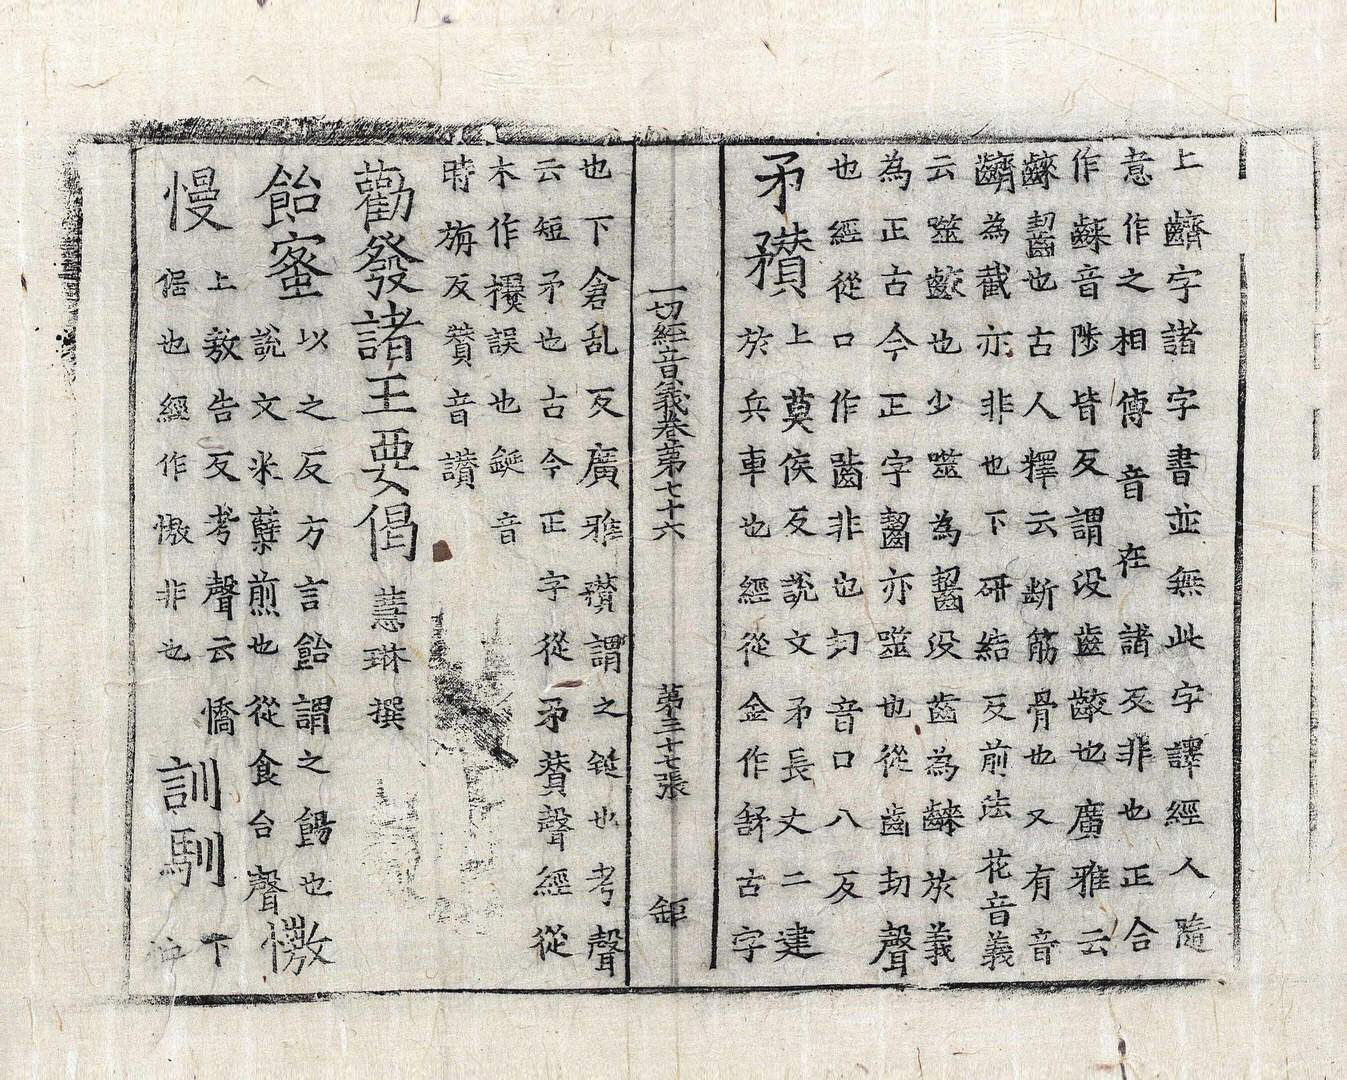 上齌字諸字書並無此字譯經人隨
意作之相傳音在諸反非也正合
作齽音陟皆反謂没齒齩也廣雅云
齽齧也古人釋云断筋骨也又有音
齌為截亦非也下研結反前法花音義
云噬齩也少噬為齧没齒為齽於義
為正古今正字齧亦噬也從齒㓞聲
也經從口作嚙非也㓞音口八反
矛䂎上莫侯反說文矛長丈二建
於兵車也經從金作鉾古字
一切經音義卷第七十六 第三十七張 鉅
也下倉乱反廣雅䂎謂之鋋也考聲
云短矛也古今正字從矛贊聲經從
木作欑誤也鋋音
時旃反贊音讃
勸發諸王要偈 慧琳撰
飴蜜以之反方言飴謂之餳也
說文米糵煎也從食台聲 憿
慢上敖告反考聲云憍
倨也經作慠非也 訓馴下